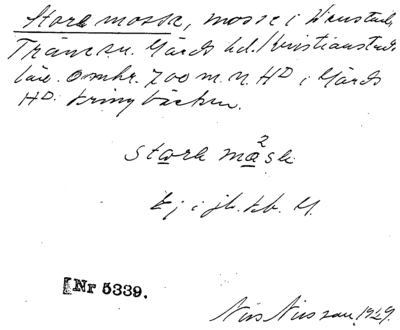 Stora mosse, mosse i
Träne sn. Gärds hd. Kristianstads
län. Omkr. 700 m. n. HD i Gärds
HD. kring bäcken.
stora måse
2
Ej i jb. kb. 
[Nr 5339.
Nils Nilsson. 1929.